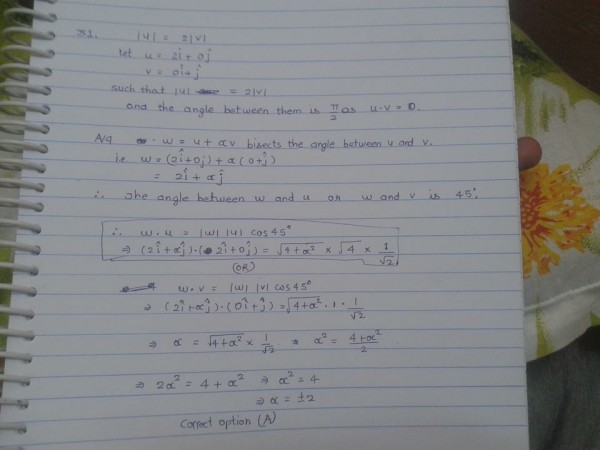 31. |u| = 2|v|
let u = 2î + 0ĵ
v = 0î + ĵ
such that |u| = 2|v|
and the angle between them is π/2 as u·v = 0.
A/q · w = u + αv bisects the angle between u and v.
i.e. w = (2î+0ĵ) + α(0+ĵ)
= 2î + αĵ
∴ The angle between w and u or w and v is 45°.
∴ w·u = |w| |u| cos45°
⇒ (2î+αĵ)·(2î+0ĵ) = √4+α² × √4 × 1/√2
(OR)
w·v = |w| |v| cos45°
⇒ (2î+αĵ)·(0î+ĵ) = √4+α² · 1 · 1/√2
⇒ α = √4+α² × 1/√2 ⇒ α² = 4+α²/2
⇒ 2α² = 4 + α² ⇒ α² = 4
⇒ α = ±2
Correct option (A)